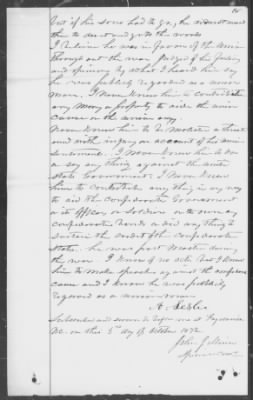 but if his sons had to go, he did not want
them to desert and go to the woods
I believe he was in favor of the Union
through out the war, judged of his feelings
and opinions by what I heard him say
he was publicly regarded as a union
man. I never knew him to contribute
any money or property to aid the union
cause or the union army.
Never knew him to be molested or threat
ened with injury on account of his union
sentiments. I never knew him to do
or say anything against the united
states Government. I never knew
him to contribute any thing in any way
to aid the confederate Government
or its officers or soldiers or to own any
confederate bonds or did any thing to
sustain the credit of the confederate
states. he was post Master during
the war. I know of no acts but I knew
him to make speeches against the confederate
cause and I know he was publicly
regarded as a union man
A. Leslie
Subscribed and sworn to before me at Fayetteville
N.C. on this 5th day of October 1872
John
Special Com